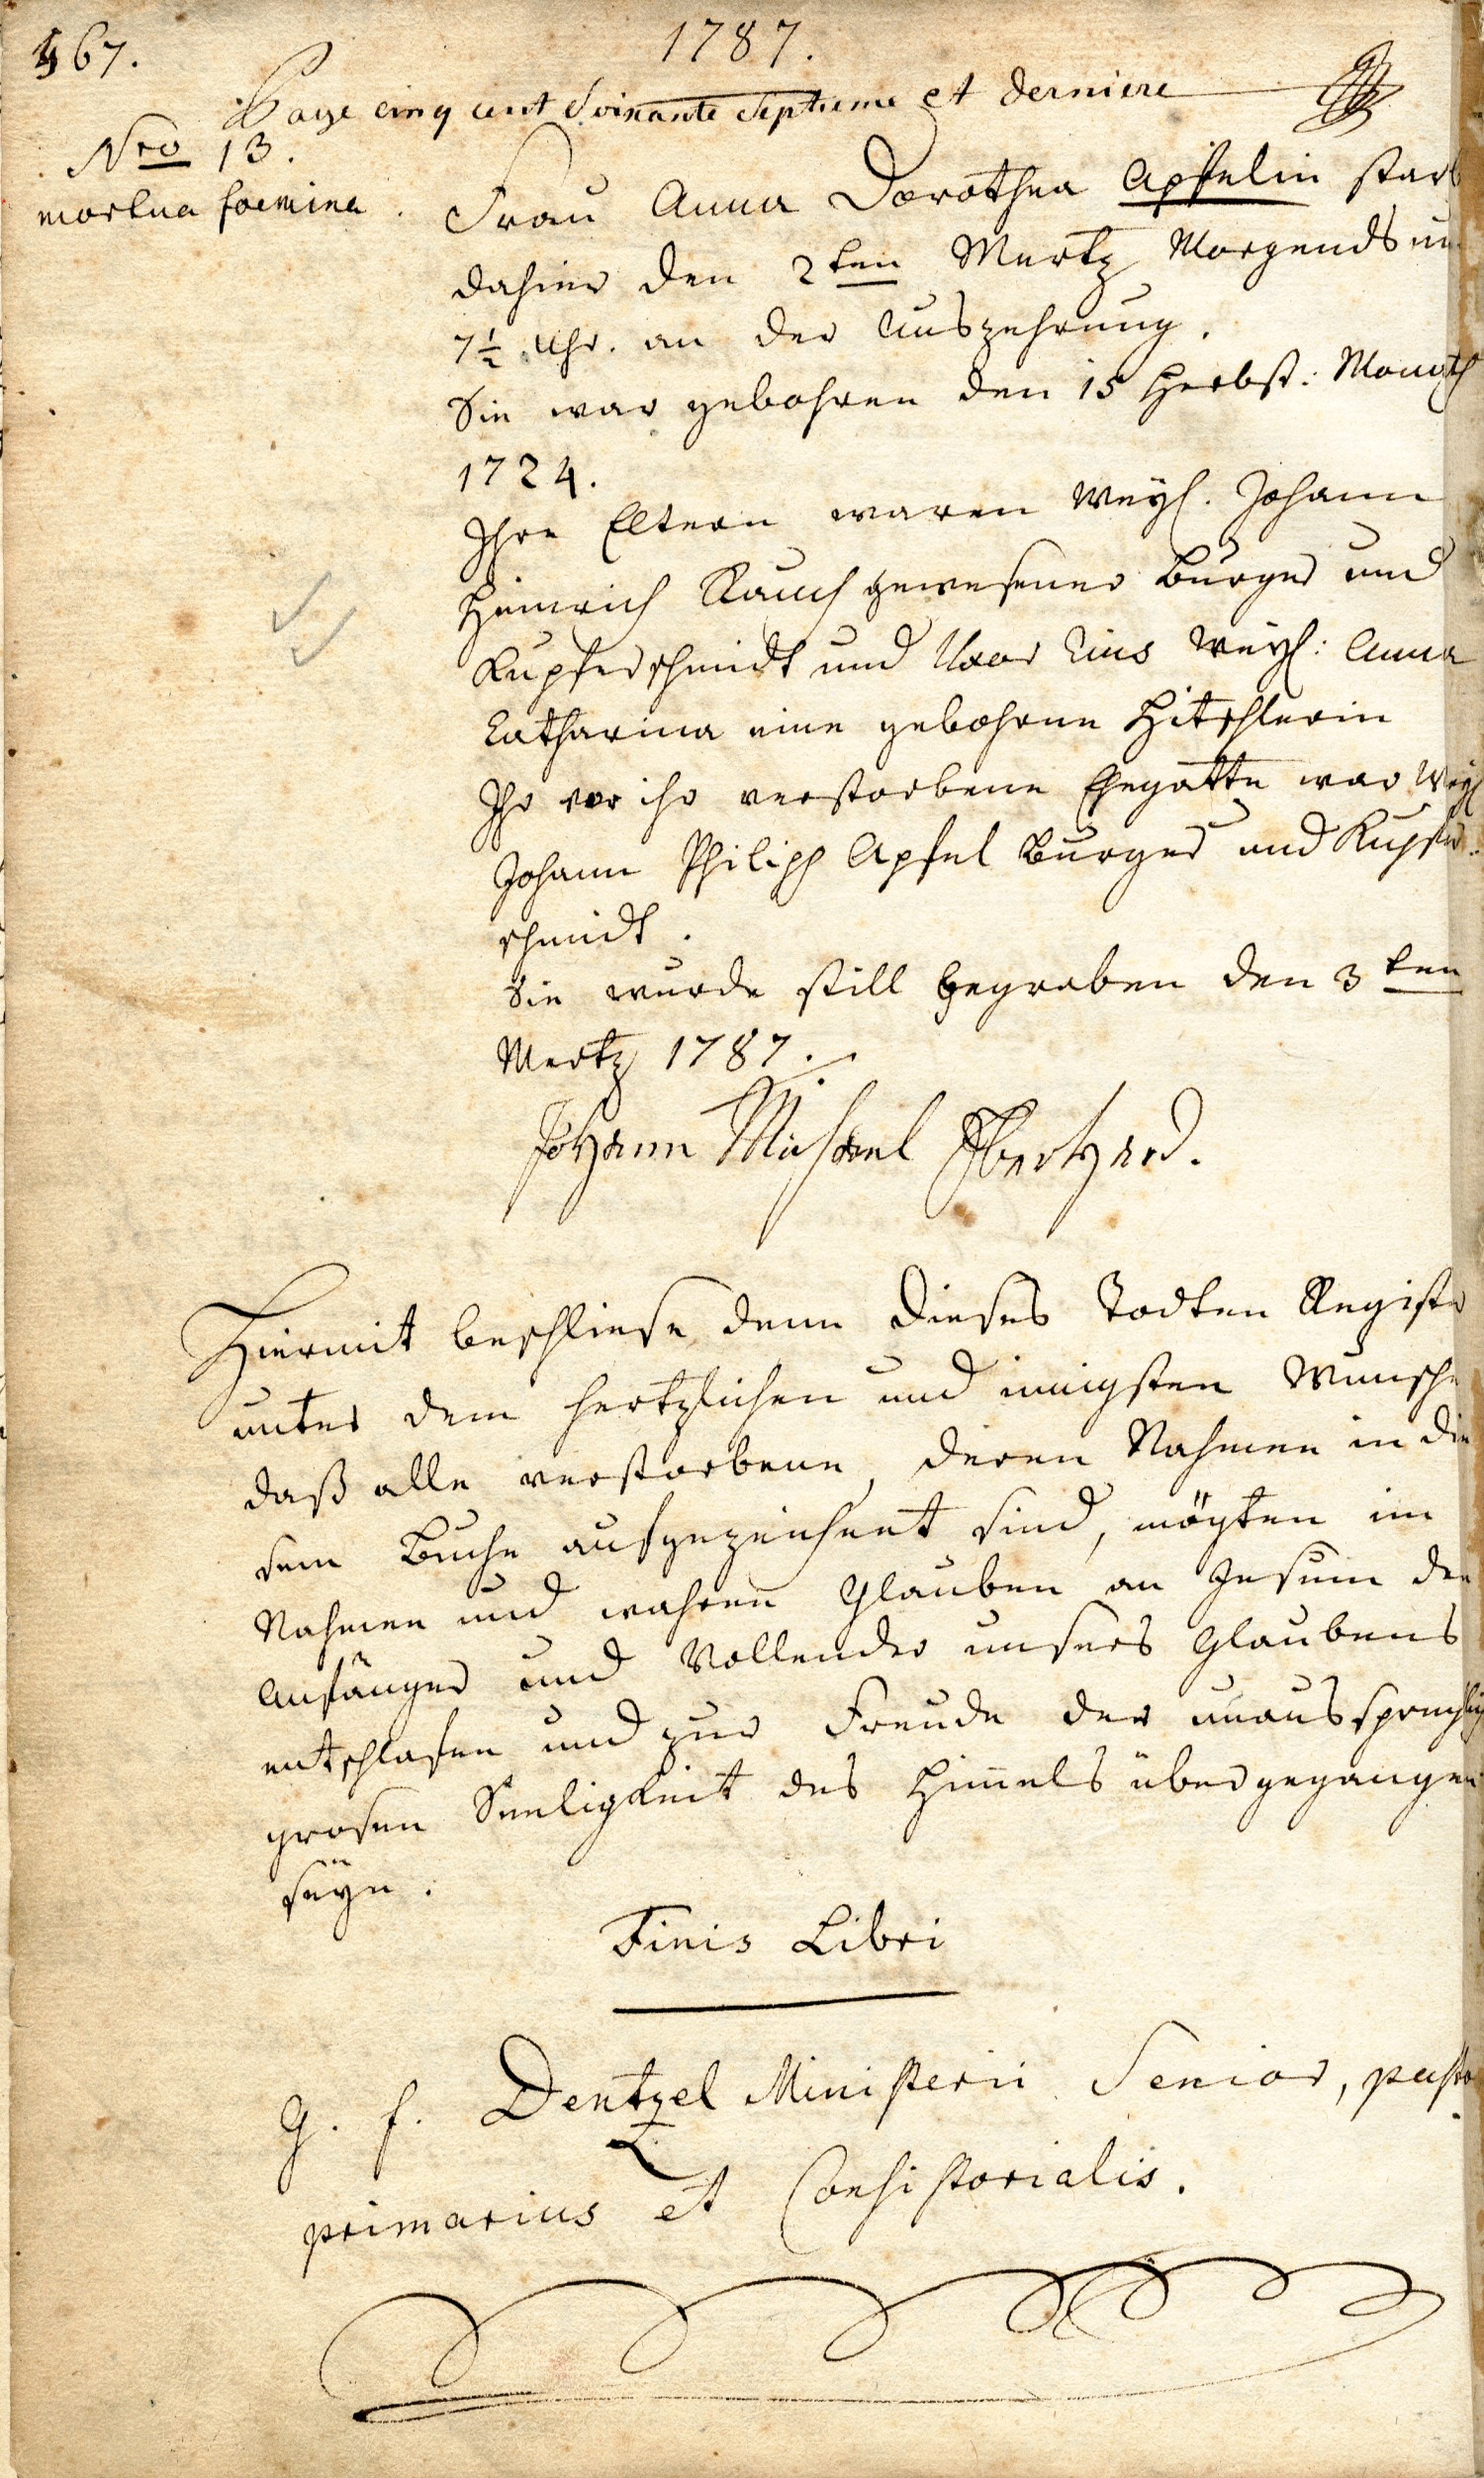 567.
1787.
Page cinq cent Soixante Septieme et derniere
Nro 13.
mortua foemina.
Frau Anna Dorothea Apfelin starb
dahier den 2ten Mertz Morgends um
7½ Uhr. an der Auszehrung.
Sie war gebohren den 15 Herbst: Monath
1724.
Ihre Eltern waren Weyl. Johann
Heinrich Rauch gewesener Burger und
Kupferschmidt und Weyl: Anna
Catharina eine gebohrne Hitschlerin
Ihr vor ihr verstorbene Ehegatte war Weyl
Johann Philipp Apfel Burger und Kupfer-
schmidt.
Sie wurde still begraben den 3ten
Mertz 1787.
Johann Michael Eberhard.
Hiermit beschliese denn dieses Todten Register
unter dem hertzlichen und innigsten Wunsche
daß alle verstorbene, deren Nahmen in die
sem Buche aufgezeichnet sind, mögten im
Nahmen und wahren Glauben an Jesum den
Anfänger und Vollender unsers Glaubens
entschlafen und zur Freude der unaussprechlich
grosen Seeligkeit des Him̄els übergegangen
seÿn.
Finis Libri
G. f. Dentzel Ministerii Senior, pastor
primarius et Consistorialis.